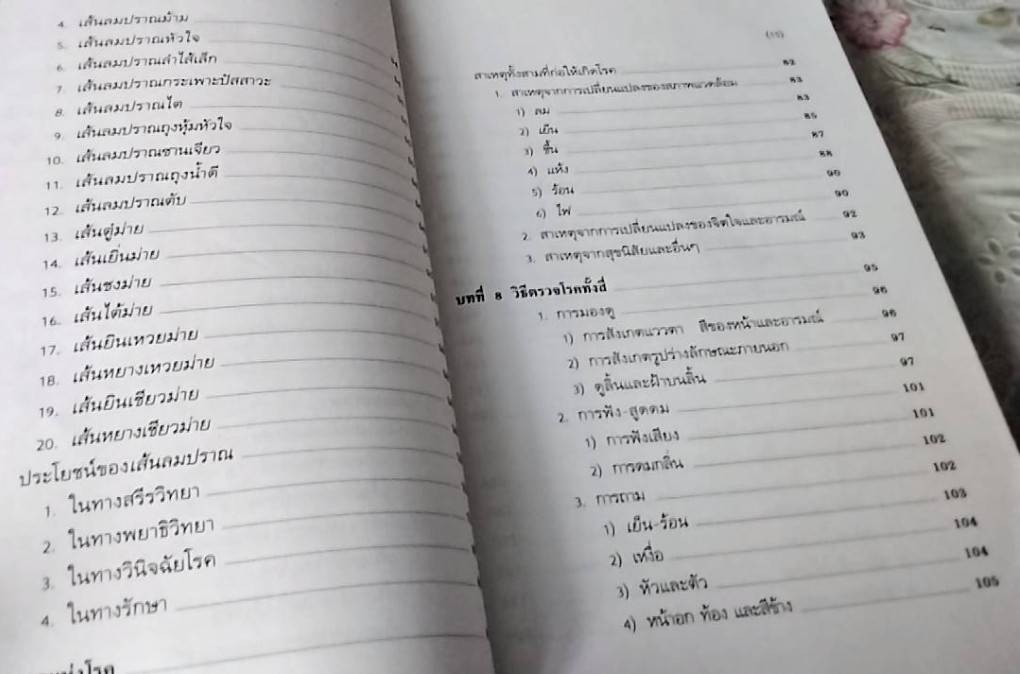 4. เส้นลมปราณม้าม
5. เส้นลมปราณหัวใจ
6. เส้นลมปราณลำไส้เล็ก
7. เส้นลมปราณกระเพาะปัสสาวะ
8. เส้นลมปราณไต
9. เส้นลมปราณถุงหุ้มหัวใจ
10. เส้นลมปราณซานเจียว
11. เส้นลมปราณถุงน้ำดี
12. เส้นลมปราณตับ
13. เส้นตู่ม่าย
14. เส้นเยิ่นม่าย
15. เส้นชงม่าย
16. เส้นไต้ม่าย
17. เส้นยินเหวยม่าย
18. เส้นหยางเหวยม่าย
19. เส้นยินเชียวม่าย
20. เส้นหยางเชียวม่าย
ประโยชน์ของเส้นลมปราณ
1. ในทางสรีรวิทยา
2. ในทางพยาธิวิทยา
3. ในทางวินิจฉัยโรค
4. ในทางรักษา
แห่งโรค
(15)
สาเหตุทั้งสามที่ก่อให้เกิดโรค 82
1. สาเหตุจากการเปลี่ยนแปลงของสภาพแวดล้อม 83
1) ลม 83
2) เย็น 85
3) ชื้น 87
4) แห้ง 88
5) ร้อน 90
6) ไฟ 90
2. สาเหตุจากการเปลี่ยนแปลงของจิตใจและอารมณ์ 92
3. สาเหตุจากสุขนิสัยและอื่นๆ 93
บทที่ 8 วิธีตรวจโรคทั้งสี่ 95
1. การมองดู 96
1) การสังเกตแววตา สีของหน้าและอารมณ์ 96
2) การสังเกตรูปร่างลักษณะภายนอก 97
3) ดูลิ้นและฝ้าบนลิ้น 97
2. การฟัง-สูดดม 101
1) การฟังเสียง 101
2) การดมกลิ่น 102
3. การถาม 102
1) เย็น-ร้อน 103
2) เหงื่อ 104
3) หัวและตัว 104
4) หน้าอก ท้อง และสีข้าง 105